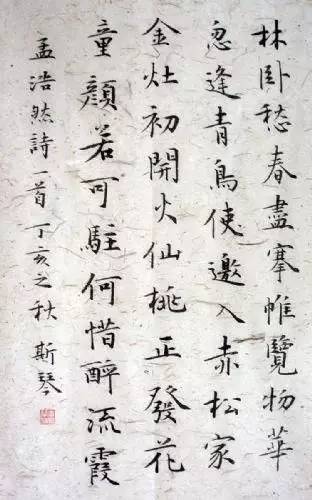 林卧愁春盡搴帷覽物華
忽逢青鳥使邀入赤松家
金灶初開火仙桃正發花
童顏若可駐何惜醉流霞
孟浩然詩一首 丁亥之秋 斯琴